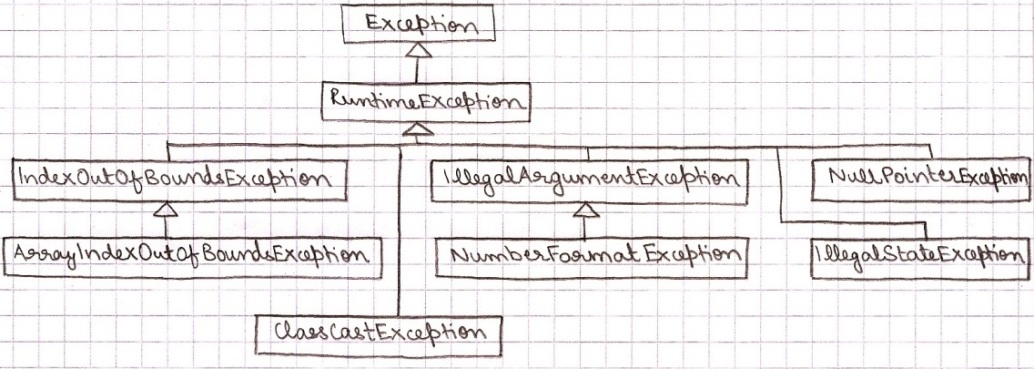 Exception
RuntimeException
IndexOutOfBoundsException
IllegalArgumentException
NullPointerException
ArrayIndexOutOfBoundsException
NumberFormatException
IllegalStateException
ClassCastException